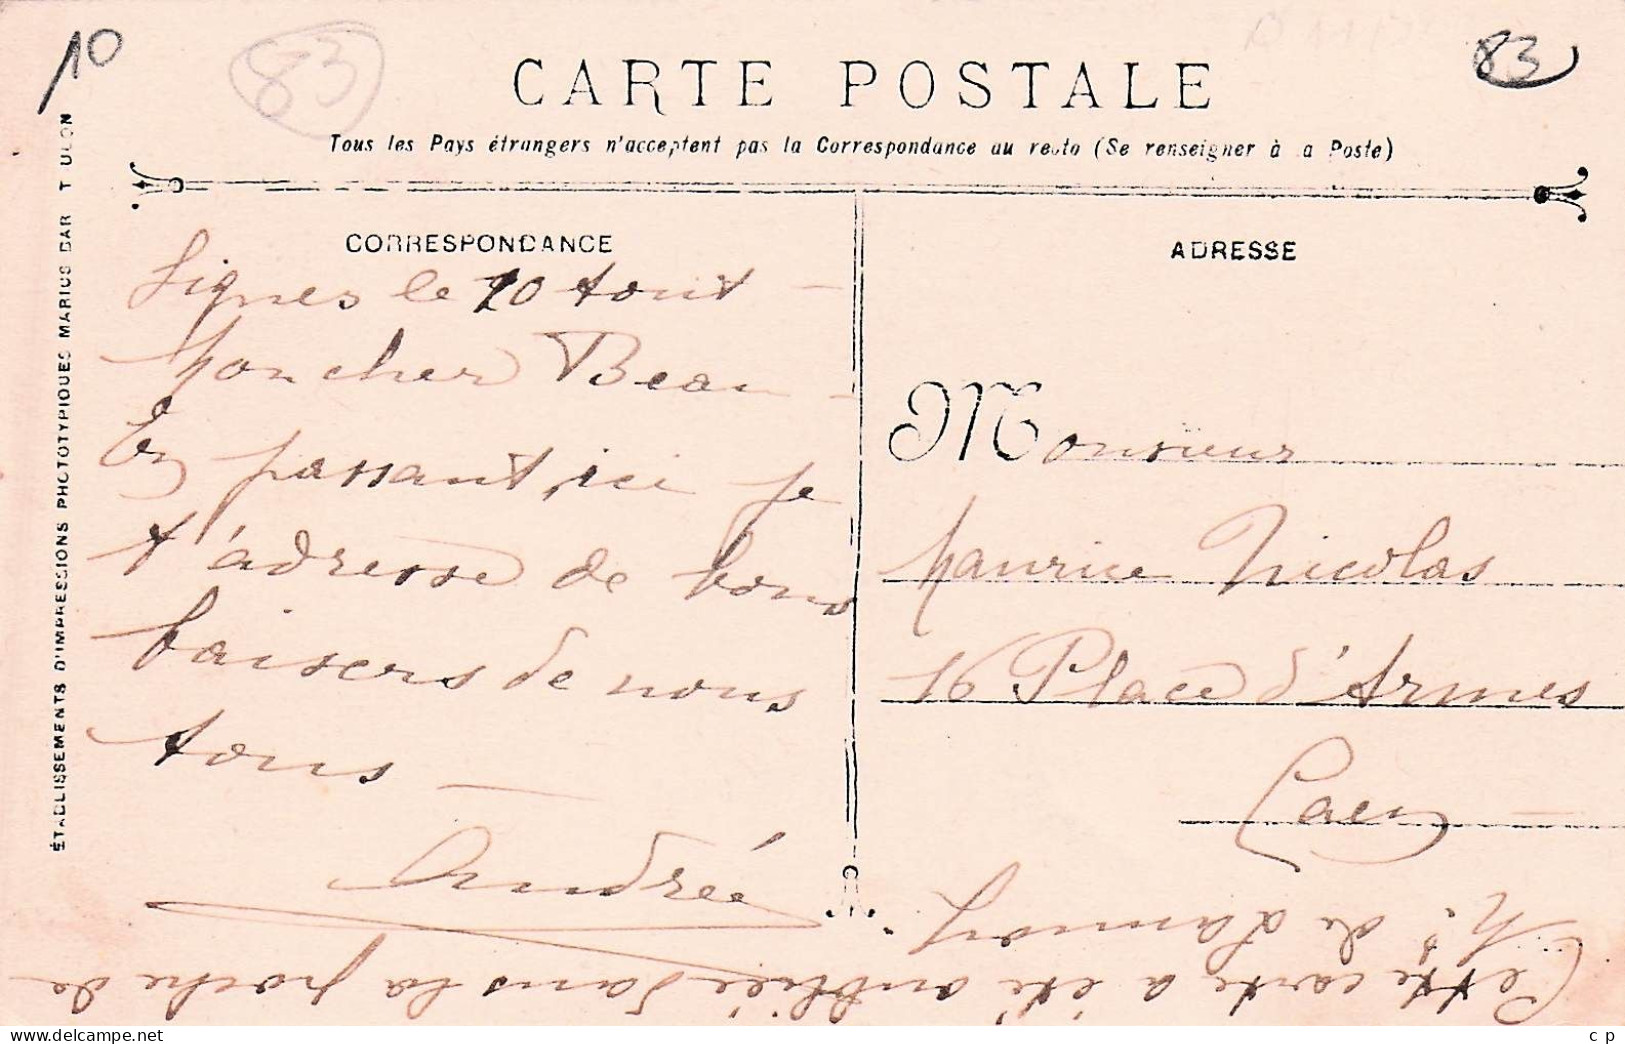 10
83
83
CARTE POSTALE
Tous les Pays étrangers n'acceptent pas la Correspondance au recto (Se renseigner à la Poste)
CORRESPONDANCE
Signes le 10 Aout —
Mon cher Beau —
En passant, ici je
t'adresse de bons
baisers de nous
tous —
Andrée
ADRESSE
Monsieur
Maurice Nicolas
16 Place d'Armes
Caen —
Cette carte a été oubliée dans la poche de
Mr de Lannoy
ÉTABLISSEMENTS D'IMPRESSIONS PHOTOTYPIQUES MARIUS BAR TOULON
c p